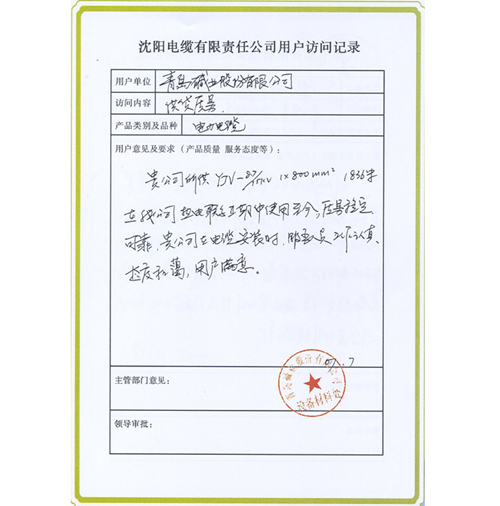 沈阳电缆有限责任公司用户访问记录
用户单位 青岛碱业股份有限公司
访问内容 供货质量
产品类别及品种 电力电缆
用户意见及要求（产品质量 服务态度等）：
贵公司所供 1×800mm² 1836米
在我公司热电联产工期中使用至今，质量稳定
可靠，贵公司在电缆安装时，服务人员工作认真，
态度和蔼，用户满意。
07.7
主管部门意见：
领导审批：